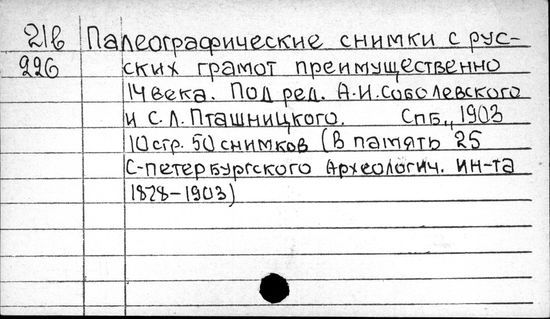 21в Палеографические снимки с рус-
226 ских грамот преимущественно
14 века. Под ред. А.И. Соболевского
и С.Л. Пташницкого. Спб., 1903
10 стр. 50 снимков (В память 25
С-петербургского Археологич. ин-та
1828-1903)